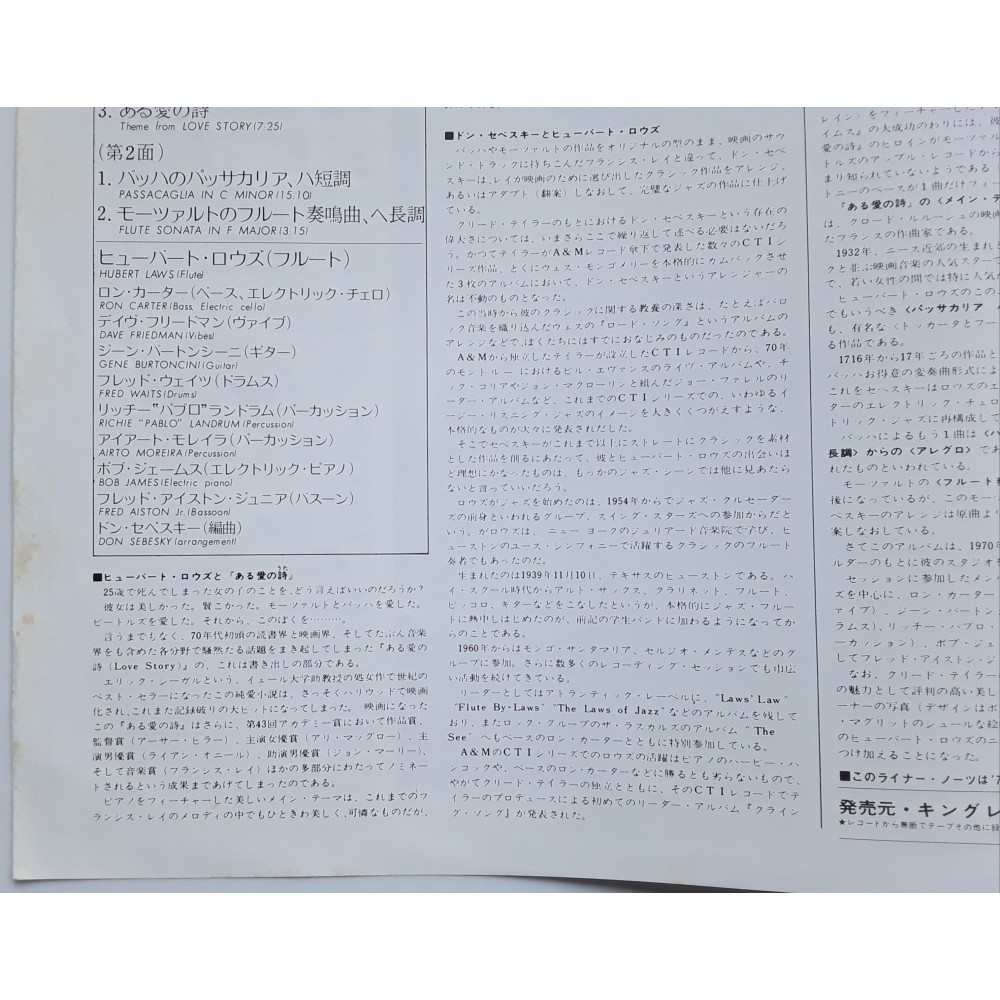 3. ある愛の詩
Theme from LOVE STORY(7:25)
(第2面)
1. バッハのパッサカリア、ハ短調
PASSACAGLIA IN C MINOR(15:10)
2. モーツァルトのフルート奏鳴曲、ヘ長調
FLUTE SONATA IN F MAJOR(3:15)
ヒューバート・ロウズ(フルート)
HUBERT LAWS(Flute)
ロン・カーター(ベース、エレクトリック・チェロ)
RON CARTER(Bass, Electric cello)
デイヴ・フリードマン(ヴァイブ)
DAVE FRIEDMAN(Vibes)
ジーン・バートンシーニ(ギター)
GENE BURTONCINI(Guitar)
フレッド・ウェイツ(ドラムス)
FRED WAITS(Drums)
リッチー“パブロ”ランドラム(パーカッション)
RICHIE "PABLO" LANDRUM(Percussion)
アイアート・モレイラ(パーカッション)
AIRTO MOREIRA(Percussion)
ボブ・ジェームス(エレクトリック・ピアノ)
BOB JAMES(Electric piano)
フレッド・アイストン・ジュニア(バスーン)
FRED AISTON Jr.(Bassoon)
ドン・セベスキー(編曲)
DON SEBESKY(arrangement)
■ヒューバート・ロウズと「ある愛の詩」
25歳で死んでしまった女の子のことを、どう言えばいいのだろうか?
彼女は美しかった。賢こかった。モーツァルトとバッハを愛した。
ビートルズを愛した。それから、このぼくを………。
言うまでもなく、70年代初頭の読書界と映画界、そしてたぶん音楽
界をも含めた各分野で騒然たる話題をまき起してしまった『ある愛の
詩(Love Story)』の、これは書き出しの部分である。
エリック・シーガルという、イェール大学助教授の処女作で世紀の
ベスト・セラーになったこの純愛小説は、さっそくハリウッドで映画
化され、これまた記録破りの大ヒットになってしまった。 映画になった
この『ある愛の詩』はさらに、第43回アカデミー賞において作品賞、
監督賞(アーサー・ヒラー)、主演女優賞(アリ・マッグロー)、主
演男優賞(ライアン・オニール)、助演男優賞(ジョン・マーリー)、
そして音楽賞(フランシス・レイ)ほかの多部分にわたってノミネー
トされるという成果まであげてしまったのである。
ピアノをフィーチャーした美しいメイン・テーマは、これまでのフ
ランシス・レイのメロディの中でもひときわ美しく、可憐なものだが、
■ドン・セベスキーとヒューバート・ロウズ
バッハやモーツァルトの作品をオリジナルの型のまま、映画のサウ
ンド・トラックに持ちこんだフランシス・レイと違って、ドン・セベ
スキーは、レイが映画のために選び出したクラシック作品をアレンジ、
あるいはアダプト(翻案)しなおして、完璧なジャズの作品に仕上げ
ている。
クリード・テイラーのもとにおけるドン・セベスキーという存在の
偉大さについては、いまさらここで繰り返して述べる必要はないだろ
う。かつてテイラーがA&Mレコード傘下で発表した数々のCTIシ
リーズ作品、とくにウェス・モンゴメリーを本格的にカムバックさせ
た3枚のアルバムにおいて、ドン・セベスキーというアレンジャーの
名は不動のものとなった。
この当時から彼のクラシックに関する教養の深さは、たとえばバロ
ック音楽を織り込んだウェスの『ロード・ソング』というアルバムの
アレンジなどで、ぼくたちにはすでにおなじみのものだったのである。
A&Mから独立したテイラーが設立したCTIレコードから、70年
のモントルーにおけるビル・エヴァンスのライヴ・アルバムや、チ
ック・コリアやジョン・マクローリンと組んだジョー・ファレルのリ
ーダー・アルバムなど、これまでのCTIシリーズでの、いわゆるイ
ージー・リスニング・ジャズのイメージを大きくくつがえすような、
本格的なものが次々に発表されだした。
そこでセベスキーがこれまで以上にストレートにクラシックを素材
とした作品を創るにあたって、彼とヒューバート・ロウズの出会いほ
ど理想にかなったものは、もっかのジャズ・シーンでは他に見あたら
ないと言っていいだろう。
ロウズがジャズを始めたのは、1954年からでジャズ・クルセーダー
ズの前身といわれるグループ、スイング・スターズへの参加からだと
いう。がロウズは、ニューヨークのジュリアード音楽院で学び、ヒ
ューストンのユース・シンフォニーで活躍するクラシックのフルート
奏者でもあったのだ。
生まれたのは1939年11月10日、テキサスのヒューストンである。ハ
イ・スクール時代からアルト・サックス、クラリネット、フルート、
ピッコロ、ギターなどをこなしたというが、本格的にジャズ・フルー
トに熱中しはじめたのが、前記の学生バンドに加わるようになってか
らのことである。
1960年からはモンゴ・サンタマリア、セルジオ・メンデスなどのグ
ループに参加。さらに数多くのレコーディング・セッションでも巾広
い活動を続けてきている。
リーダーとしてはアトランティック・レーベルに、“Laws' Law”
“Flute By-Laws” “The Laws of Jazz”などのアルバムを残して
おり、またロック・グループのザ・ラスカルズのアルバム “The
See” へもベースのロン・カーターとともに特別参加している。
A&MのCTIシリーズでのロウズの活躍はピアノのハービー・ハ
ンコックや、ベースのロン・カーターなどに勝るとも劣らないもので、
やがてクリード・テイラーの独立とともに、そのCTIレコードでテ
イラーのプロデュースによる初めてのリーダー・アルバム『クライン
グ・ソング』が発表された。
レイン〉をフィーチャーした
イムス』の大成功のわりには、彼
愛の詩』のヒロインがモーツァル
トルズのアップル・レコードから
まり知られていないようである
トニーのベースが1曲だけフィー
『ある愛の詩』の〈メイン・テ
は、クロード・ルルーシュの映画
たフランスの作曲家である。
1932年、ニース近郊の生まれと
クと並ぶ映画音楽の人気スターで
で、若い女性の間では特に人気
ヒューバート・ロウズのこの
でもいうべき〈パッサカリア
も、有名な〈トッカータとフー
る作品である。
1716年から17年ごろの作品と
バッハお得意の変奏曲形式によ
これをセベスキーはロウズのエ
ターのエレクトリック・チェロ
トリック・ジャズに再構成して
バッハによるもう1曲は〈ハ
長調〉からの〈アレグロ〉であ
れたものといわれている。
モーツァルトの〈フルート奏
後になっているが、このモー
ベスキーのアレンジは原曲より
案しなおしている。
さてこのアルバムは、1970年
ルダーのもとに彼のスタジオ
セッションに参加したメン
ズを中心に、ロン・カーター
ァイブ)、ジーン・バートン
ラムス)、リッチー・パブロ・
ーカッション)、ボブ・ジェ
してフレッド・アイストン・ジ
なお、クリード・テイラー
の魅力として評判の高い美し
ーナーの写真(デザインはボ
・マグリットのシュールな絵
のヒューバート・ロウズのニ
つけ加えることになった。
■このライナー・ノーツは'7
発売元・キングレ
★レコードから無断でテープその他に録